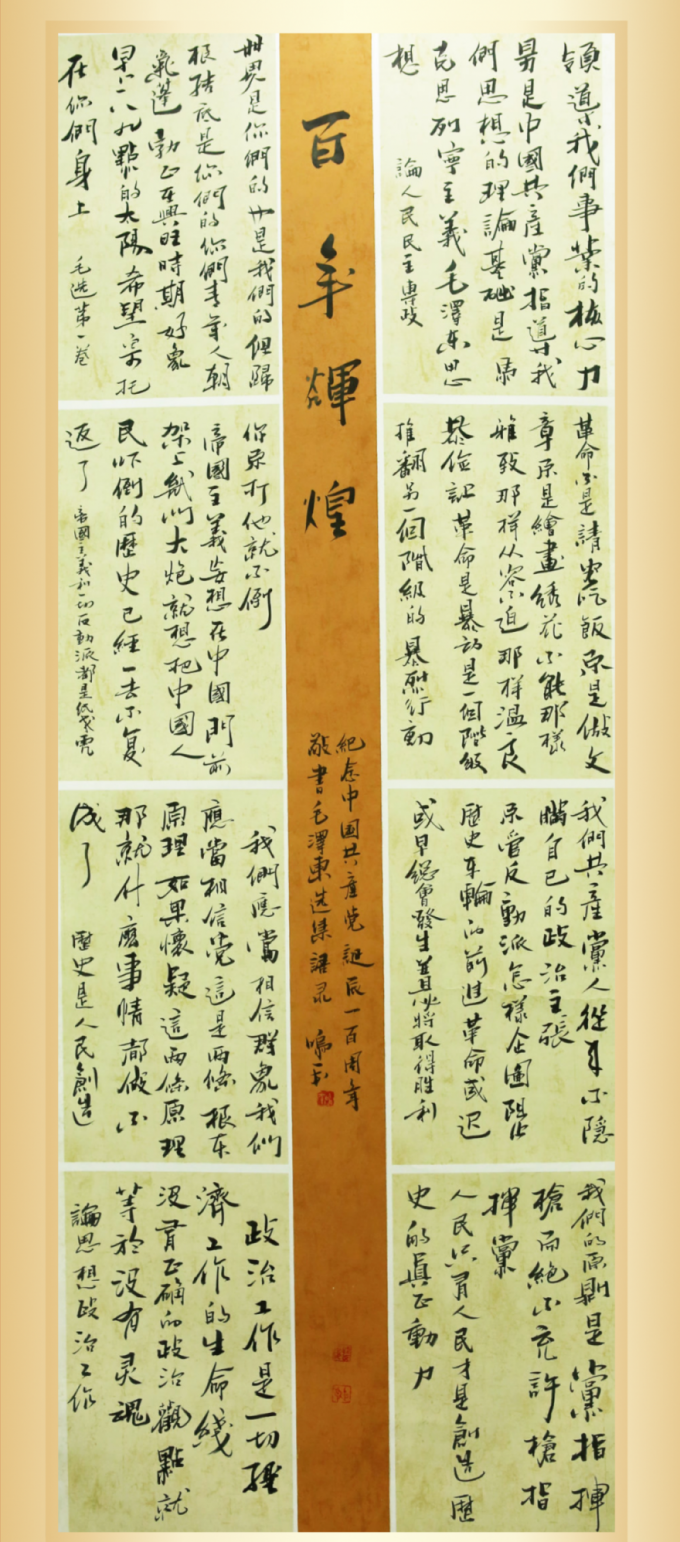 領導我們事業的核心力
量是中國共產黨指導我
們思想的理論基礎是馬
克思列寧主義毛澤东思
想
論人民民主專政
革命不是請客吃飯不是做文
章不是繪畫綉花不能那樣
雅致那样从容不迫那样温良
恭儉讓革命是暴动是一個階級
推翻另一個階級的暴烈行動
我們共產黨人從来不隱
瞞自己的政治主張
不管反動派怎樣企圖阻止
歷史车輪的前進革命或迟
或早總會發生並且必將取得胜利
我們的原則是黨指揮
槍而絕不充許槍指
揮黨
人民只有人民才是創造歷
史的真正動力
百年輝煌
紀念中国共產党誕辰一百周年
敬書毛澤東选集語录
世界是你們的也是我們的但歸
根結底是你們的你們青年人朝
氣蓬勃正在興旺時期好象
早上八九點的太陽希望寄托
在你們身上
毛选第一卷
你不打他就不倒
帝國主義妄想在中國門前
架上幾门大炮就想把中國人
民吓倒的歷史已經一去不复
返了
帝國主義和一切反動派都是纸老虎
我們應當相信群眾我们
應當相信党這是两條根本
原理如果懷疑這两條原理
那就什麼事情都做不
成了
歷史是人民創造
政治工作是一切經
濟工作的生命綫
沒有正确的政治觀點就
等於沒有灵魂
論思想政治工作